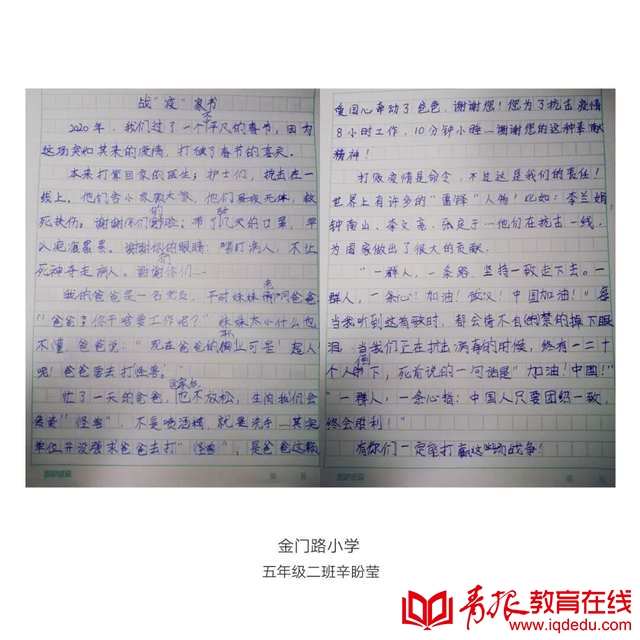 战"疫"家书
2020年，我们过了一个不平凡的春节，因为
这场突如其来的疫情，打破了春节的喜庆。
本来打算回家的医生，护士们，抗击在一
线上，他们舍小家为大家，他们
死扶伤。谢谢你们的脸，带了几天的口罩，
谢谢你们的眼睛，盯病人，不让
死神寻走病人。谢谢你们…
我的爸爸是一名党员，平时妹妹总问爸爸
"爸爸！你干啥要工作呢？"妹妹太小什么也
不懂，爸爸说："现在爸爸的工作可是！超人
呢！爸爸要去打怪兽。"
忙了一天的爸爸，回家后也不放松，生肉我们会
"怪兽"，不是喷酒精，就是洗手…其实
单位并没强求爸爸去打"怪兽"，是爸爸这颗
爱国心牵动了爸爸，谢谢您！您为了抗击疫情
8小时工作，10分钟小睡…谢谢您的这种奉献
精神！
打败疫情是命令，不过这是我们的责任！
世界上有许多的"雷锋"人物！比如：李兰娟
钟南山，李文亮，张定宇…他们在抗击一线，
为国家做出了很大的贡献。
"一群人，一条路，坚持一致走下去。一
群人，一条心！加油！武汉！中国加油！"每
当我听到这首歌时，都会情不自禁的掉下眼
泪，当我们正在抗击病毒的时候，终有一二十
个人倒下，死前说的一句话是"加油！中国！"
"一群人，一条心指：中国人只要团结一致，
终会胜利！"
有你们一定能打赢这场战争！
金门路小学
五年级二班辛盼莹
青报教育在线
www.iqdedu.com